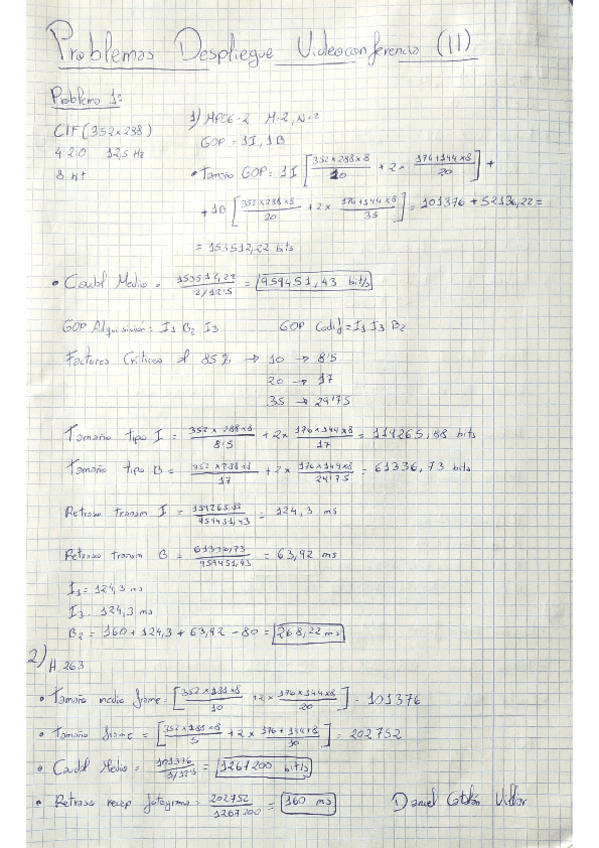 Problemas Despliegue Videoconferencia (II)
Problema 1:
CIF (352x288)
4:2:0 12,5 Hz
8 bit
1) MPEG-2 M=2, N=2
GOP = 1I, 1B
• Tamaño GOP = 1I [ 352x288x8 / 10 + 2x 176x144x8 / 20 ] +
+ 1B [ 352x288x8 / 20 + 2x 176x144x8 / 35 ] = 101376 + 52136,22 =
= 153512,22 bits
• Caudal Medio = 153512,22 / 2/12'5 = 959451,43 bit/s
GOP Adquisición: I1 B2 I3 GOP Codif = I1 I3 B2
Factores Críticos al 85% → 10 → 8'5
20 → 17
35 → 29'75
Tamaño tipo I = 352x288x8 / 8'5 + 2x 176x144x8 / 17 = 119265,88 bits
Tamaño tipo B = 352x288x8 / 17 + 2x 176x144x8 / 29'75 = 61336,73 bits
Retraso transm I = 119265,88 / 959451,43 = 124,3 ms
Retraso transm B = 61336,73 / 959451,43 = 63,92 ms
I1 = 124,3 ms
I3 = 124,3 ms
B2 = 160 + 124,3 + 63,92 - 80 = 268,22 ms
2) H263
• Tamaño medio frame = [ 352x288x8 / 10 + 2x 176x144x8 / 20 ] = 101376
• Tamaño frame = [ 352x288x8 / 5 + 2x 176x144x8 / 10 ] = 202752
• Caudal Medio = 101376 / 1/12'5 = 1267200 bit/s
• Retraso recep fotograma = 202752 / 1267200 = 160 ms
Daniel